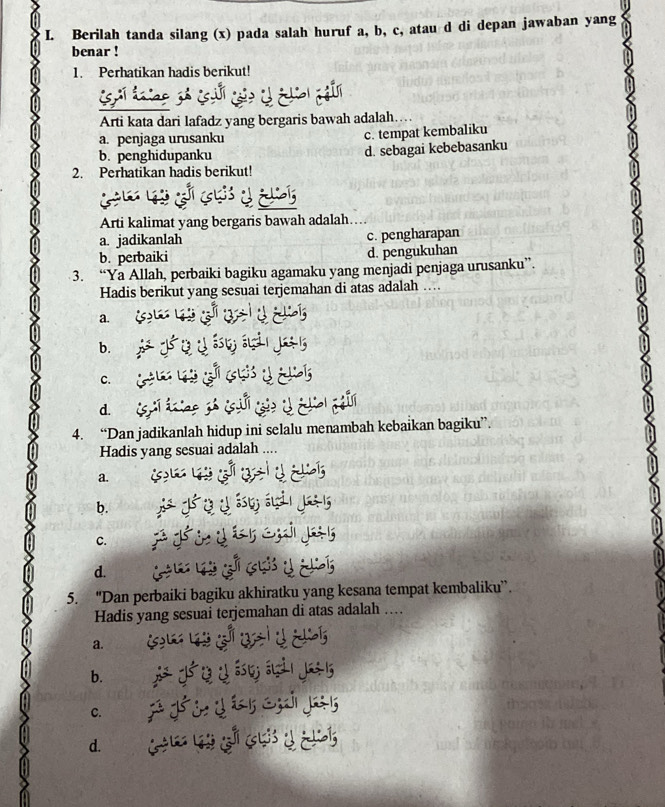 I. Berilah tanda silang (x) pada salah huruf a, b, c, atau d di depan jawaban yang
benar !
1. Perhatikan hadis berikut!
اَللّٰهُمَّ اَصْلِحْ لِيْ دِيْنِيَ الَّذِيْ هُوَ عِصْمَةُ أَمْرِيْ
Arti kata dari lafadz yang bergaris bawah adalah….
a. penjaga urusanku
c. tempat kembaliku
b. penghidupanku
d. sebagai kebebasanku
2. Perhatikan hadis berikut!
وَأَصْلِحْ لِيْ دُنْيَايَ الَّتِيْ فِيْهَا مَعَاشِيْ
Arti kalimat yang bergaris bawah adalah….
a. jadikanlah
c. pengharapan
b. perbaiki
d. pengukuhan
3. “Ya Allah, perbaiki bagiku agamaku yang menjadi penjaga urusanku”.
Hadis berikut yang sesuai terjemahan di atas adalah ….
a. وَأَصْلِحْ لِيْ اٰخِرَتِيَ الَّتِيْ فِيْهَا مَعَادِيْ
b. وَاجْعَلِ الْحَيَاةَ زِيَادَةً لِيْ فِيْ كُلِّ خَيْرٍ
c. وَأَصْلِحْ لِيْ دُنْيَايَ الَّتِيْ فِيْهَا مَعَاشِيْ
d. اَللّٰهُمَّ اَصْلِحْ لِيْ دِيْنِيَ الَّذِيْ هُوَ عِصْمَةُ أَمْرِيْ
4. “Dan jadikanlah hidup ini selalu menambah kebaikan bagiku”.
Hadis yang sesuai adalah ....
a. وَأَصْلِحْ لِيْ اٰخِرَتِيَ الَّتِيْ فِيْهَا مَعَادِيْ
b. وَاجْعَلِ الْحَيَاةَ زِيَادَةً لِيْ فِيْ كُلِّ خَيْرٍ
c. وَاجْعَلِ الْمَوْتَ رَاحَةً لِيْ مِنْ كُلِّ شَرٍّ
d. وَأَصْلِحْ لِيْ دُنْيَايَ الَّتِيْ فِيْهَا مَعَاشِيْ
5. "Dan perbaiki bagiku akhiratku yang kesana tempat kembaliku”.
Hadis yang sesuai terjemahan di atas adalah ….
a. وَأَصْلِحْ لِيْ اٰخِرَتِيَ الَّتِيْ فِيْهَا مَعَادِيْ
b. وَاجْعَلِ الْحَيَاةَ زِيَادَةً لِيْ فِيْ كُلِّ خَيْرٍ
c. وَاجْعَلِ الْمَوْتَ رَاحَةً لِيْ مِنْ كُلِّ شَرٍّ
d. وَأَصْلِحْ لِيْ دُنْيَايَ الَّتِيْ فِيْهَا مَعَاشِيْ